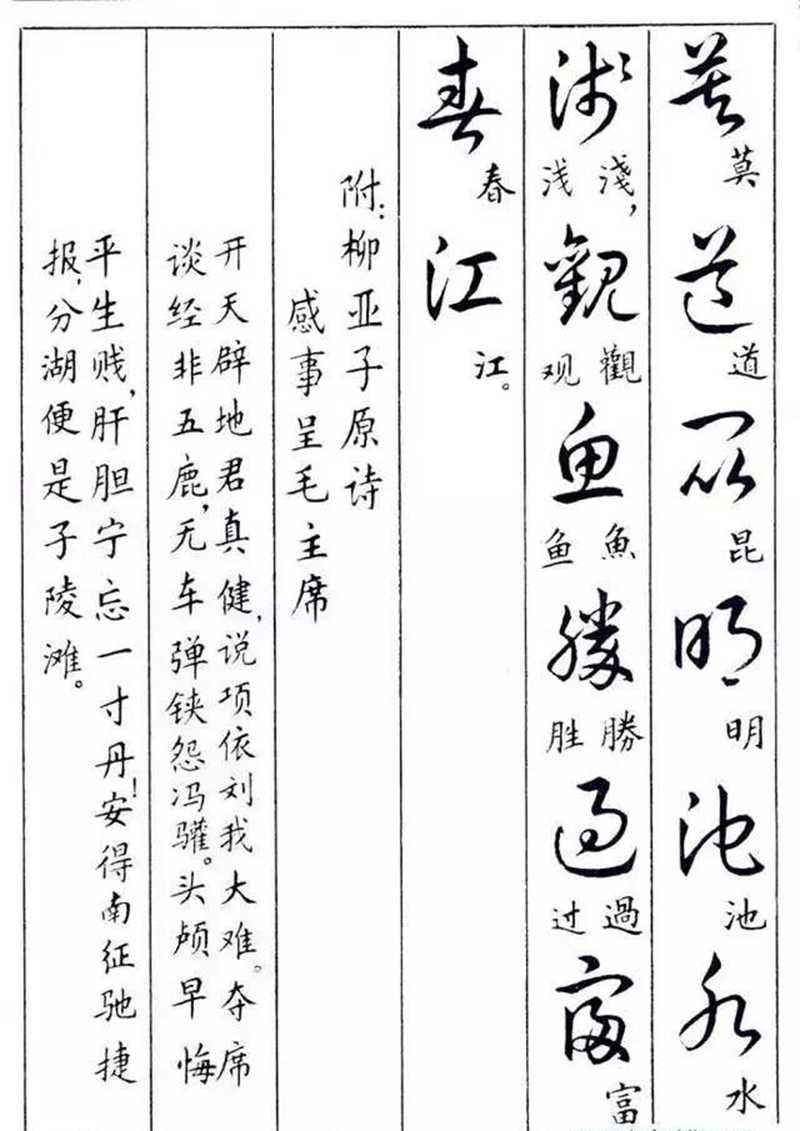 莫道昆明池水
莫道昆明池水
淺觀鱼勝過富
淺,觀魚勝過富
浅观鱼胜过
春江
春江。
附:柳亚子原诗
感事呈毛主席
开天辟地君真健,说项依刘我大难。夺席
谈经非五鹿,无车弹铗怨冯驩。头颅早悔
平生贱,肝胆宁忘一寸丹!安得南征驰捷
报,分湖便是子陵滩。